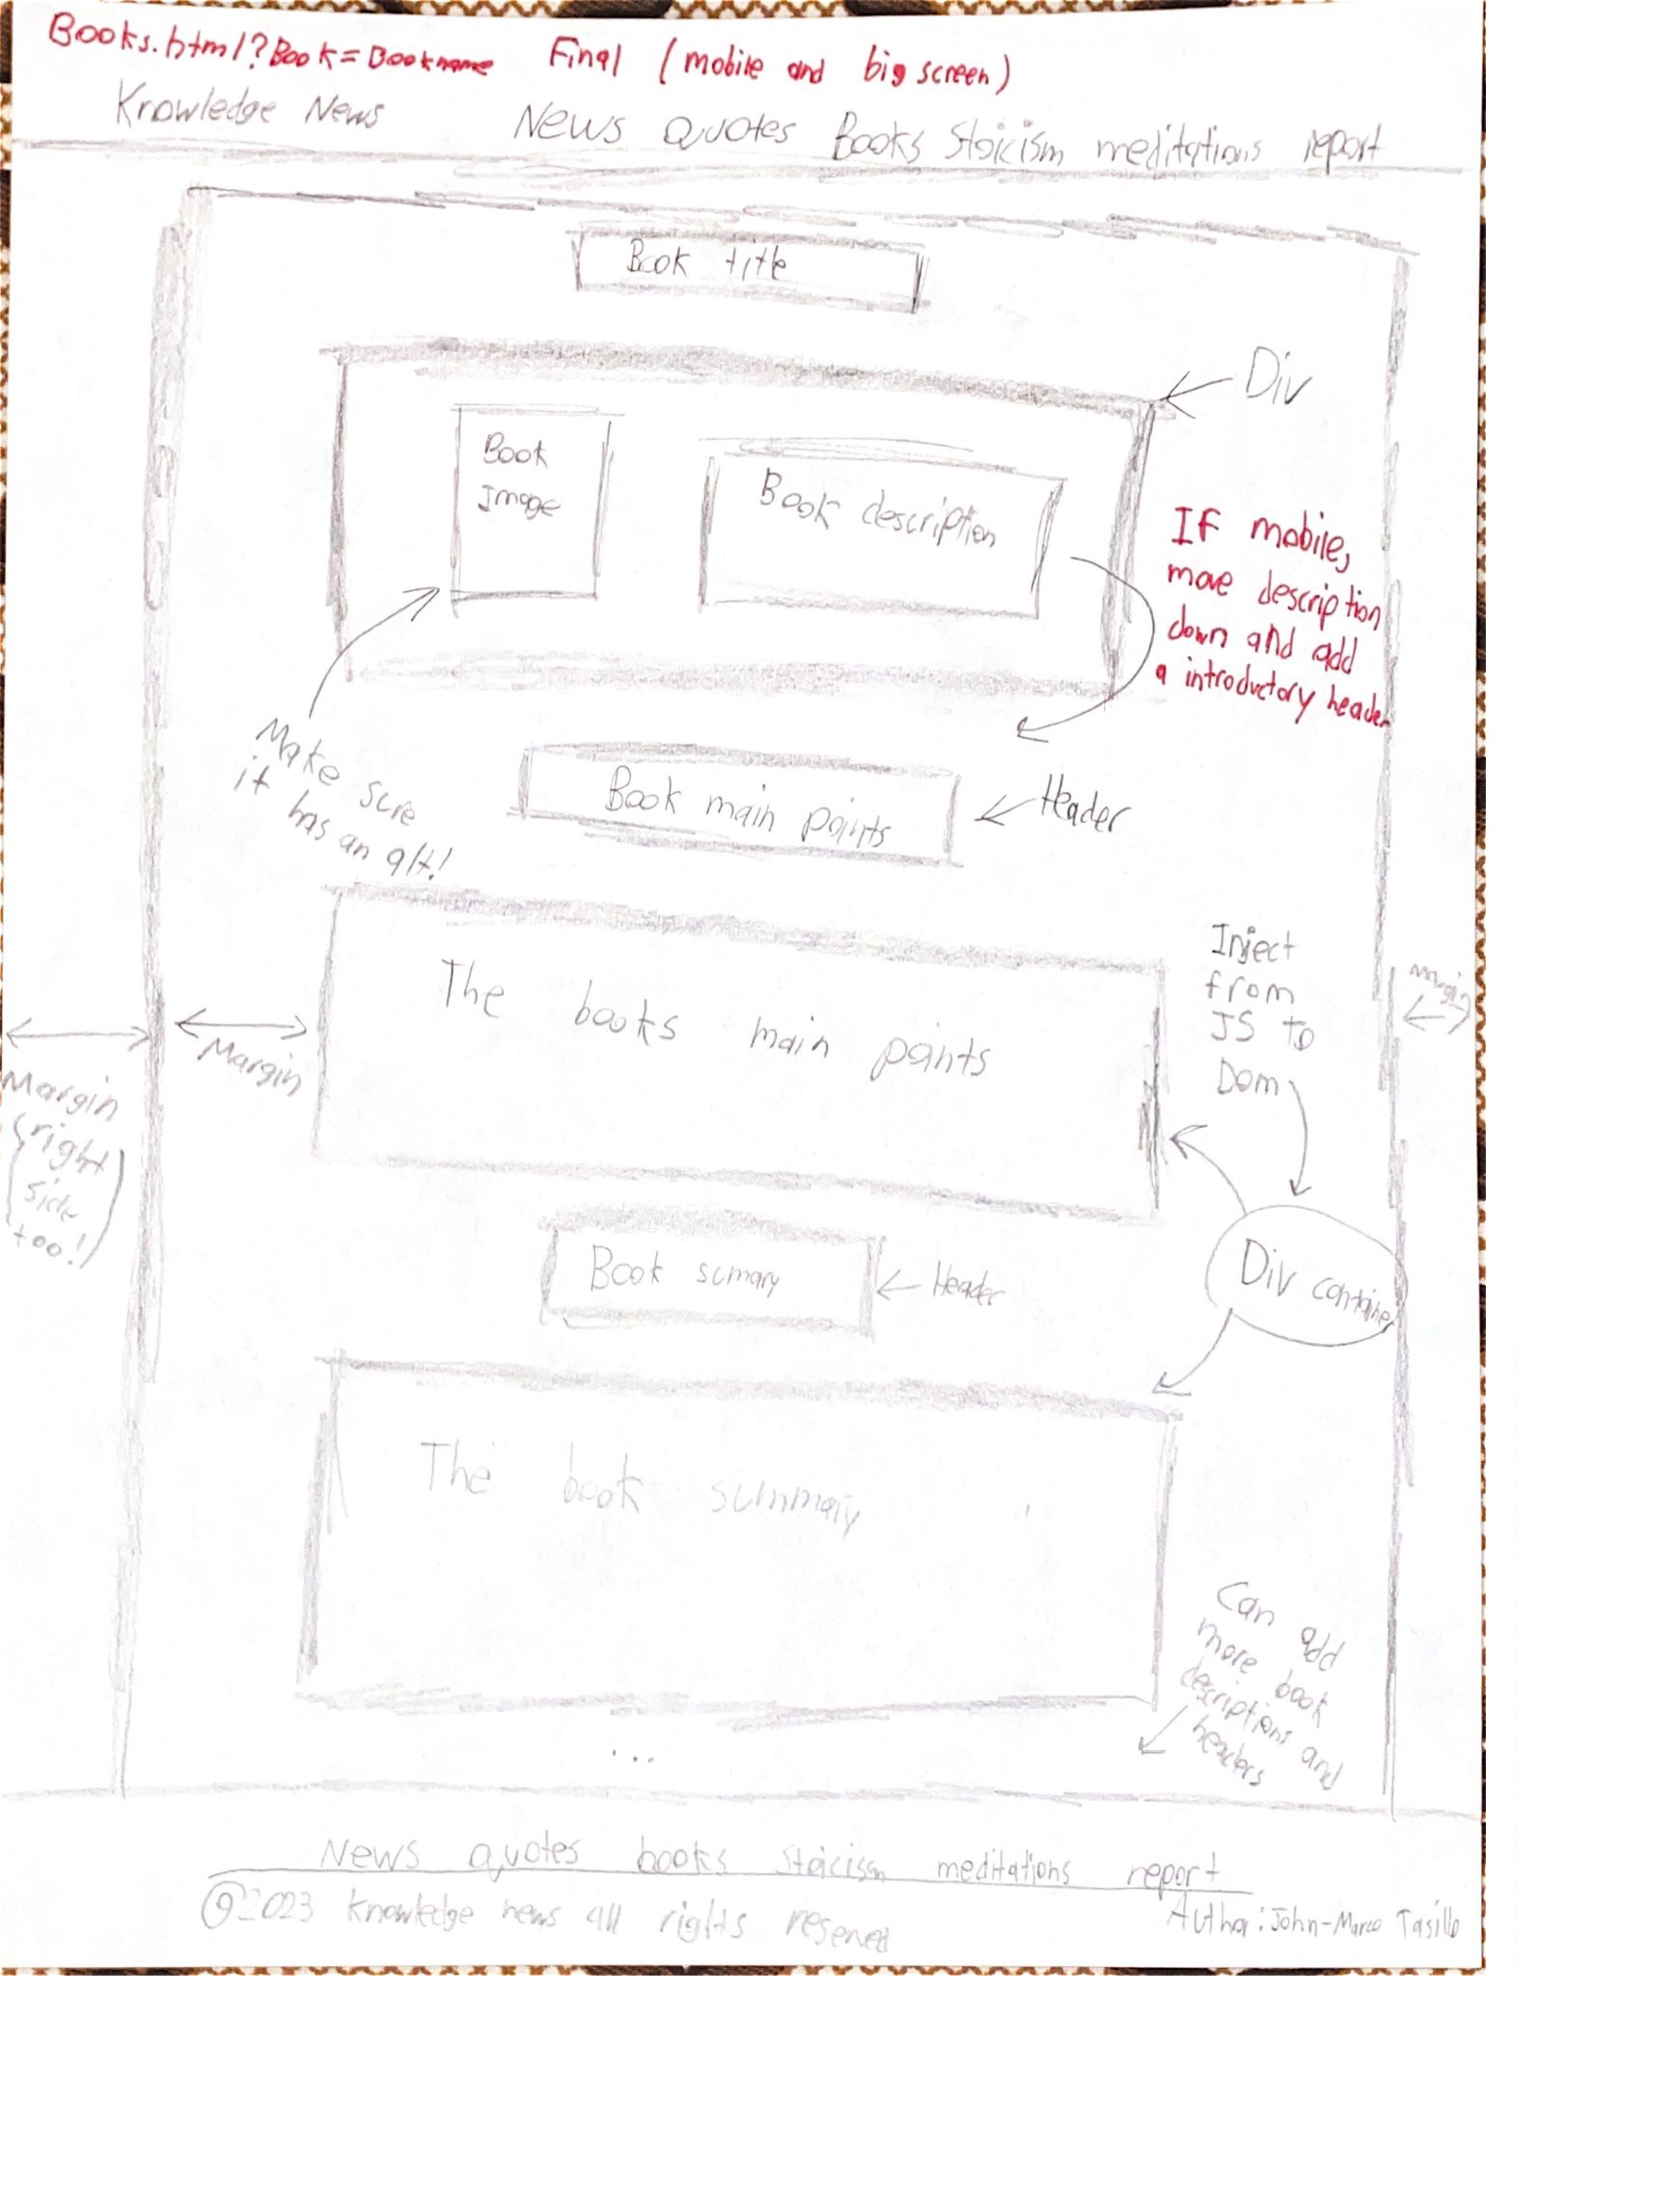 Books.html?Book=Bookname Final (mobile and big screen)
Knowledge News News Quotes Books Stoicism meditations report
Book title
Div
Book
Image
Book description
IF mobile,
move description
down and add
a introductory header
Make sure
it has an alt!
Book main points
Header
The books main points
Inject
from
JS to
Dom
margin
Margin
Margin
(right
side
too!)
Book sumary
Header
Div container
The book summary
Can add
more book
descriptions and
headers
...
News quotes books Stoicism meditations report
©2023 knowledge news all rights reserved
Author: John-Marco Tasillo